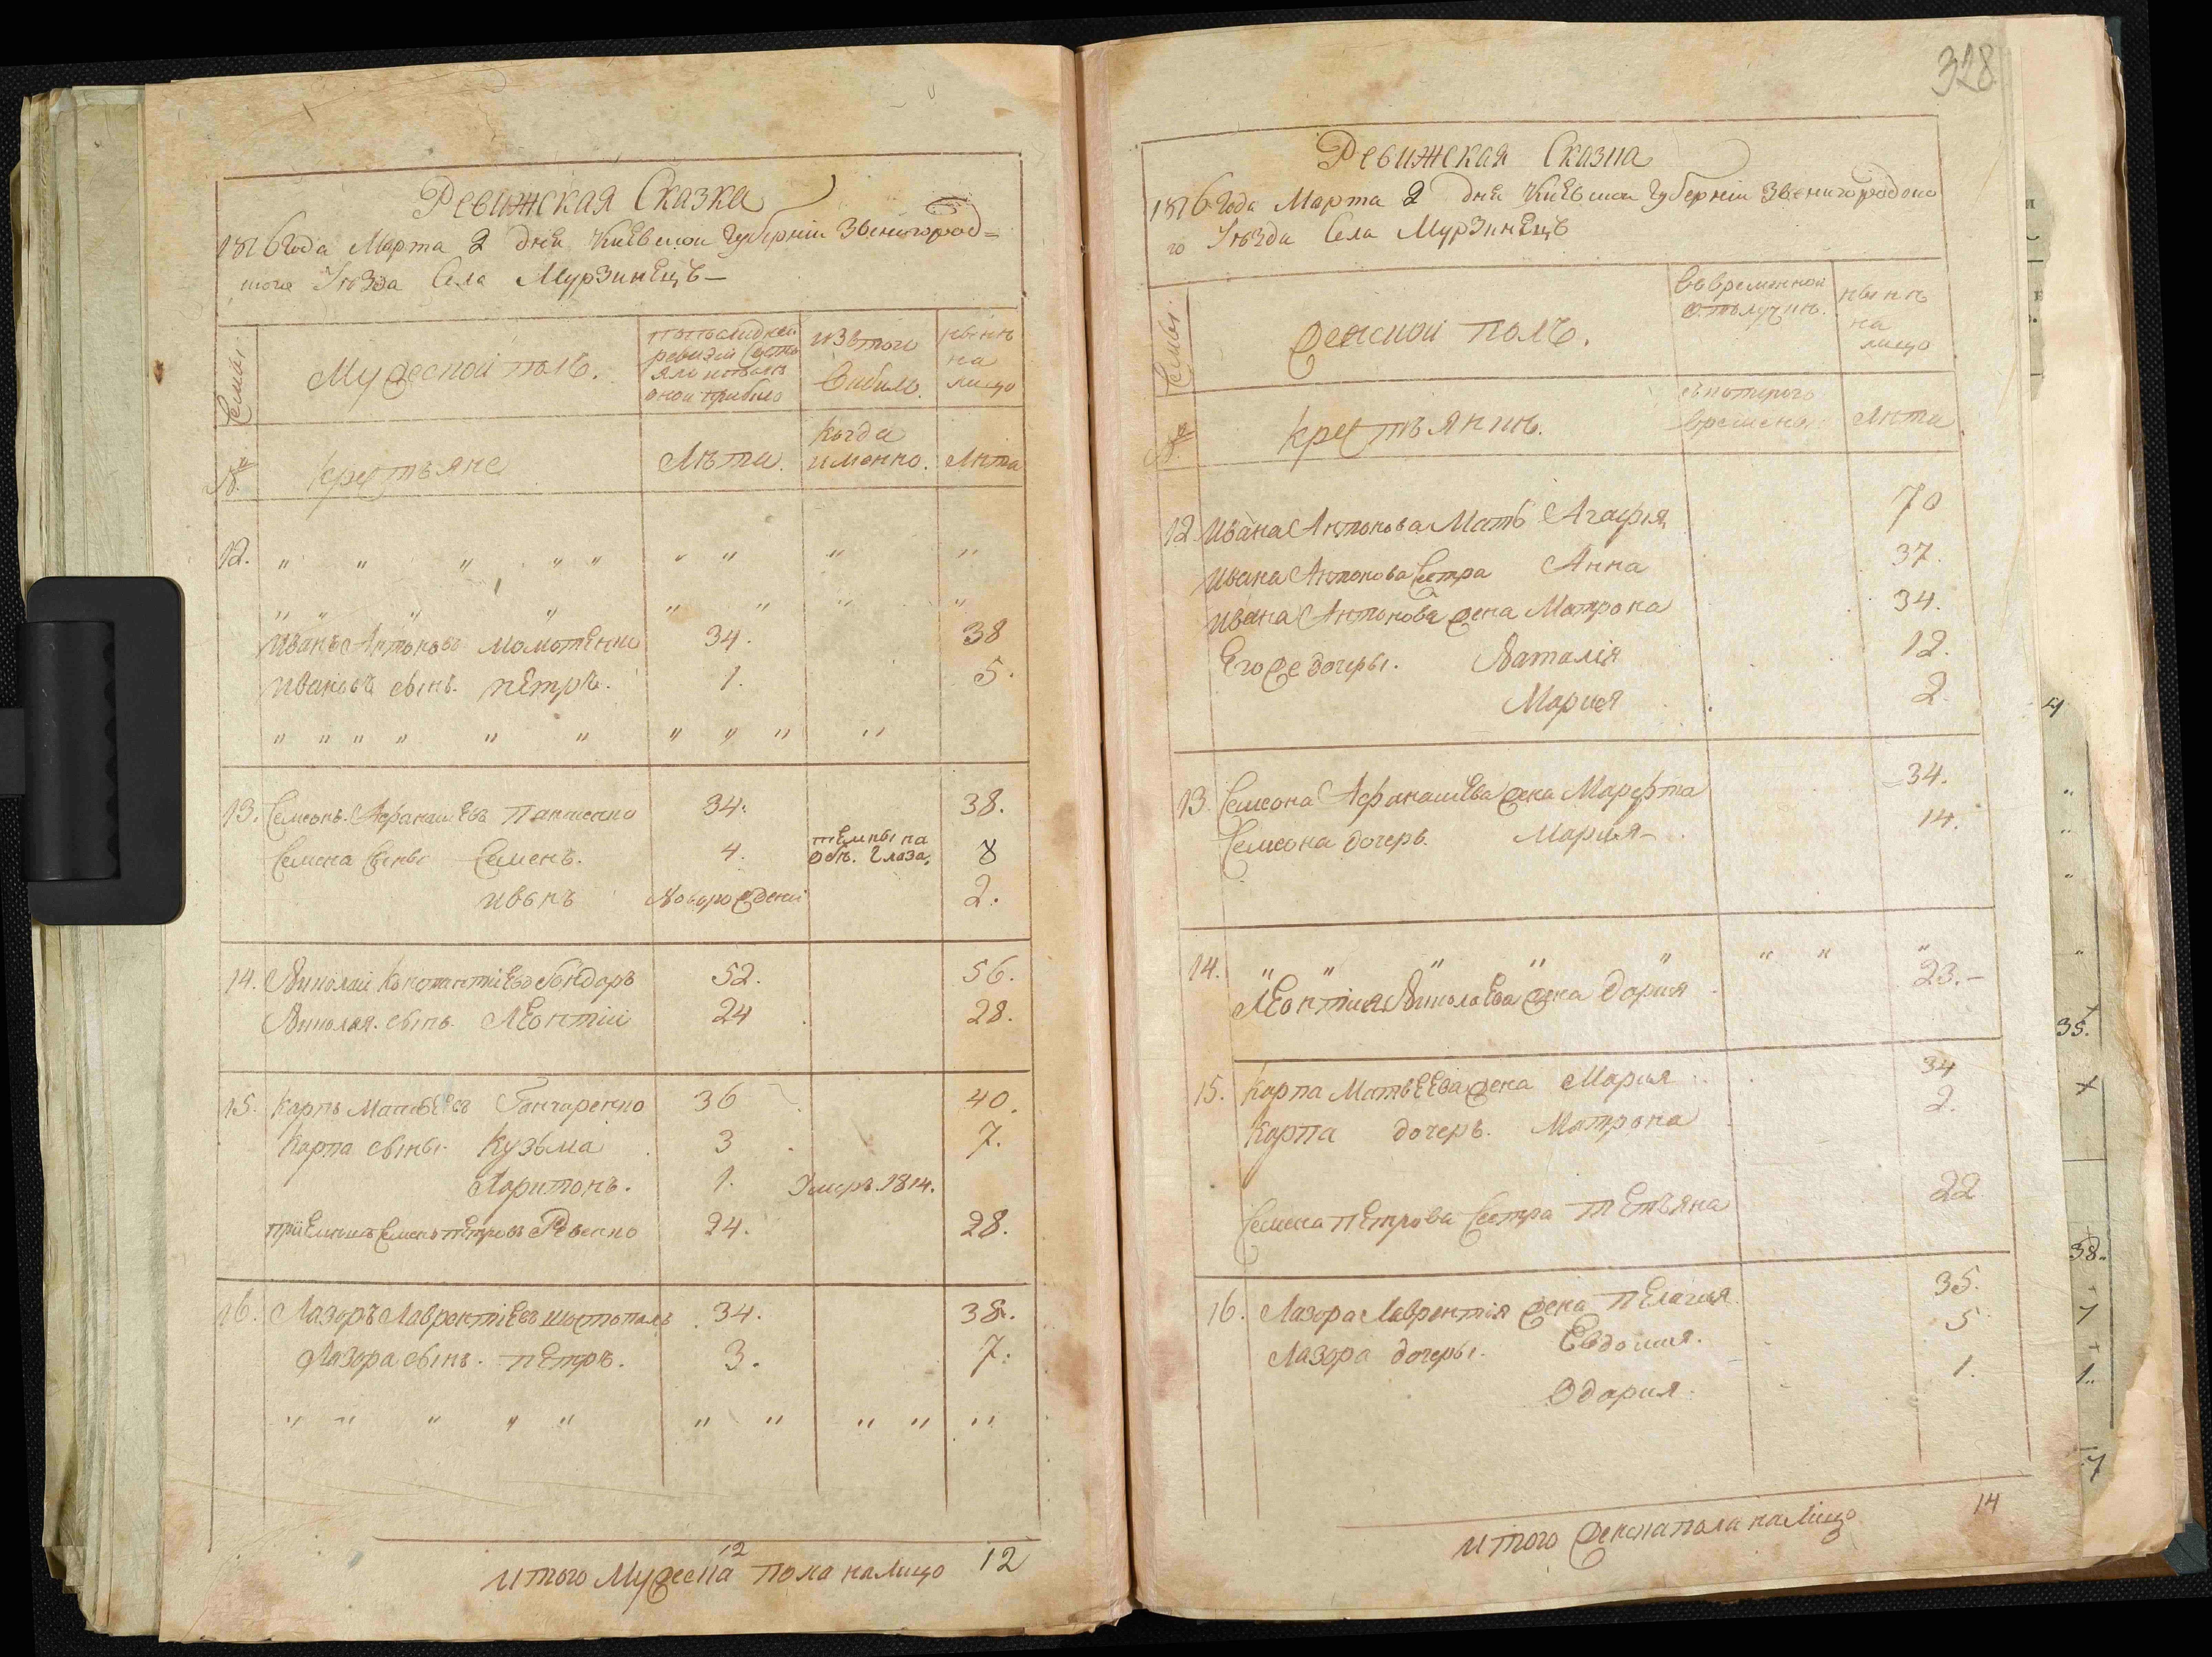 Ревижская Сказка
1816 года Марта 2 дня Киевской Губерніи Звенигород=
ского Уѣзда Села Мурзинецъ
Семьи
Мужеской полъ.
по послѣдней
ревизіи состо
яло и после
оной прибыло
изъ того
выбыло.
нынѣ
на
лицо
№
крестьяне
Лѣта.
когда
именно.
Лѣта
12. " " " " " " " " "
" " " " " " " "
Иванъ Антоновъ Момотенко 34. 38
Ивановъ сынъ. Петръ. 1. 5.
" " " " " " " " " "
13. Семонъ Афанасіевъ Панасенко 34. 38.
Семена сыны Семенъ. 4. темны на 8
обѣ. Глаза.
Иванъ Новорожденій 2.
14. Николай Константіевъ Бондаръ 52. 56.
Николая. сынъ. Леонтій 24 28.
15. Карпъ Матвѣевъ Гончаренко 36 40.
Карпа сыны. Кузьма 3 7.
Харитонъ. 1. Умеръ. 1814.
пріемышъ Семенъ Петровъ Ревенко 24. 28.
16. Лазоръ Лаврентіевъ Шостопалъ 34. 38.
Лазора сынъ. Петръ. 3. 7.
" " " " " " " " " "
12
Итого Мужеска пола налицо 12
328
Ревижская Сказка
1816 Года Марта 2 дня Киевской Губерніи Звенигородско
го Уѣзда Села Мурзинецъ
Семьи
Женской полъ.
Во временной
отлучкѣ.
нынѣ
на
лицо
№
крестьянинъ.
съ котораго
времена
Лѣта
12 Ивана Антонова Мать Агафія 70
Ивана Антонова Сестра Анна 37.
Ивана Антонова жена Матрона 34.
Его же дочеры. Наталія 12.
Мария 2.
13. Семсона Афанасіева жена Марефта 34.
Семсона дочеръ. Мария 14.
14. " " " " " " " "
Леонтия Николаева жена Дория 23.
15. Карпа Матвѣева жена Мария 34
Карпа дочеръ. Матрона 2.
Семена Петрова Сестра Тетьяна 22
16. Лазора Лаврентія жена Пелагия 35.
Лазора дочеры. Евдокия. 5
Одария. 1.
Итого женска пола налицо 14